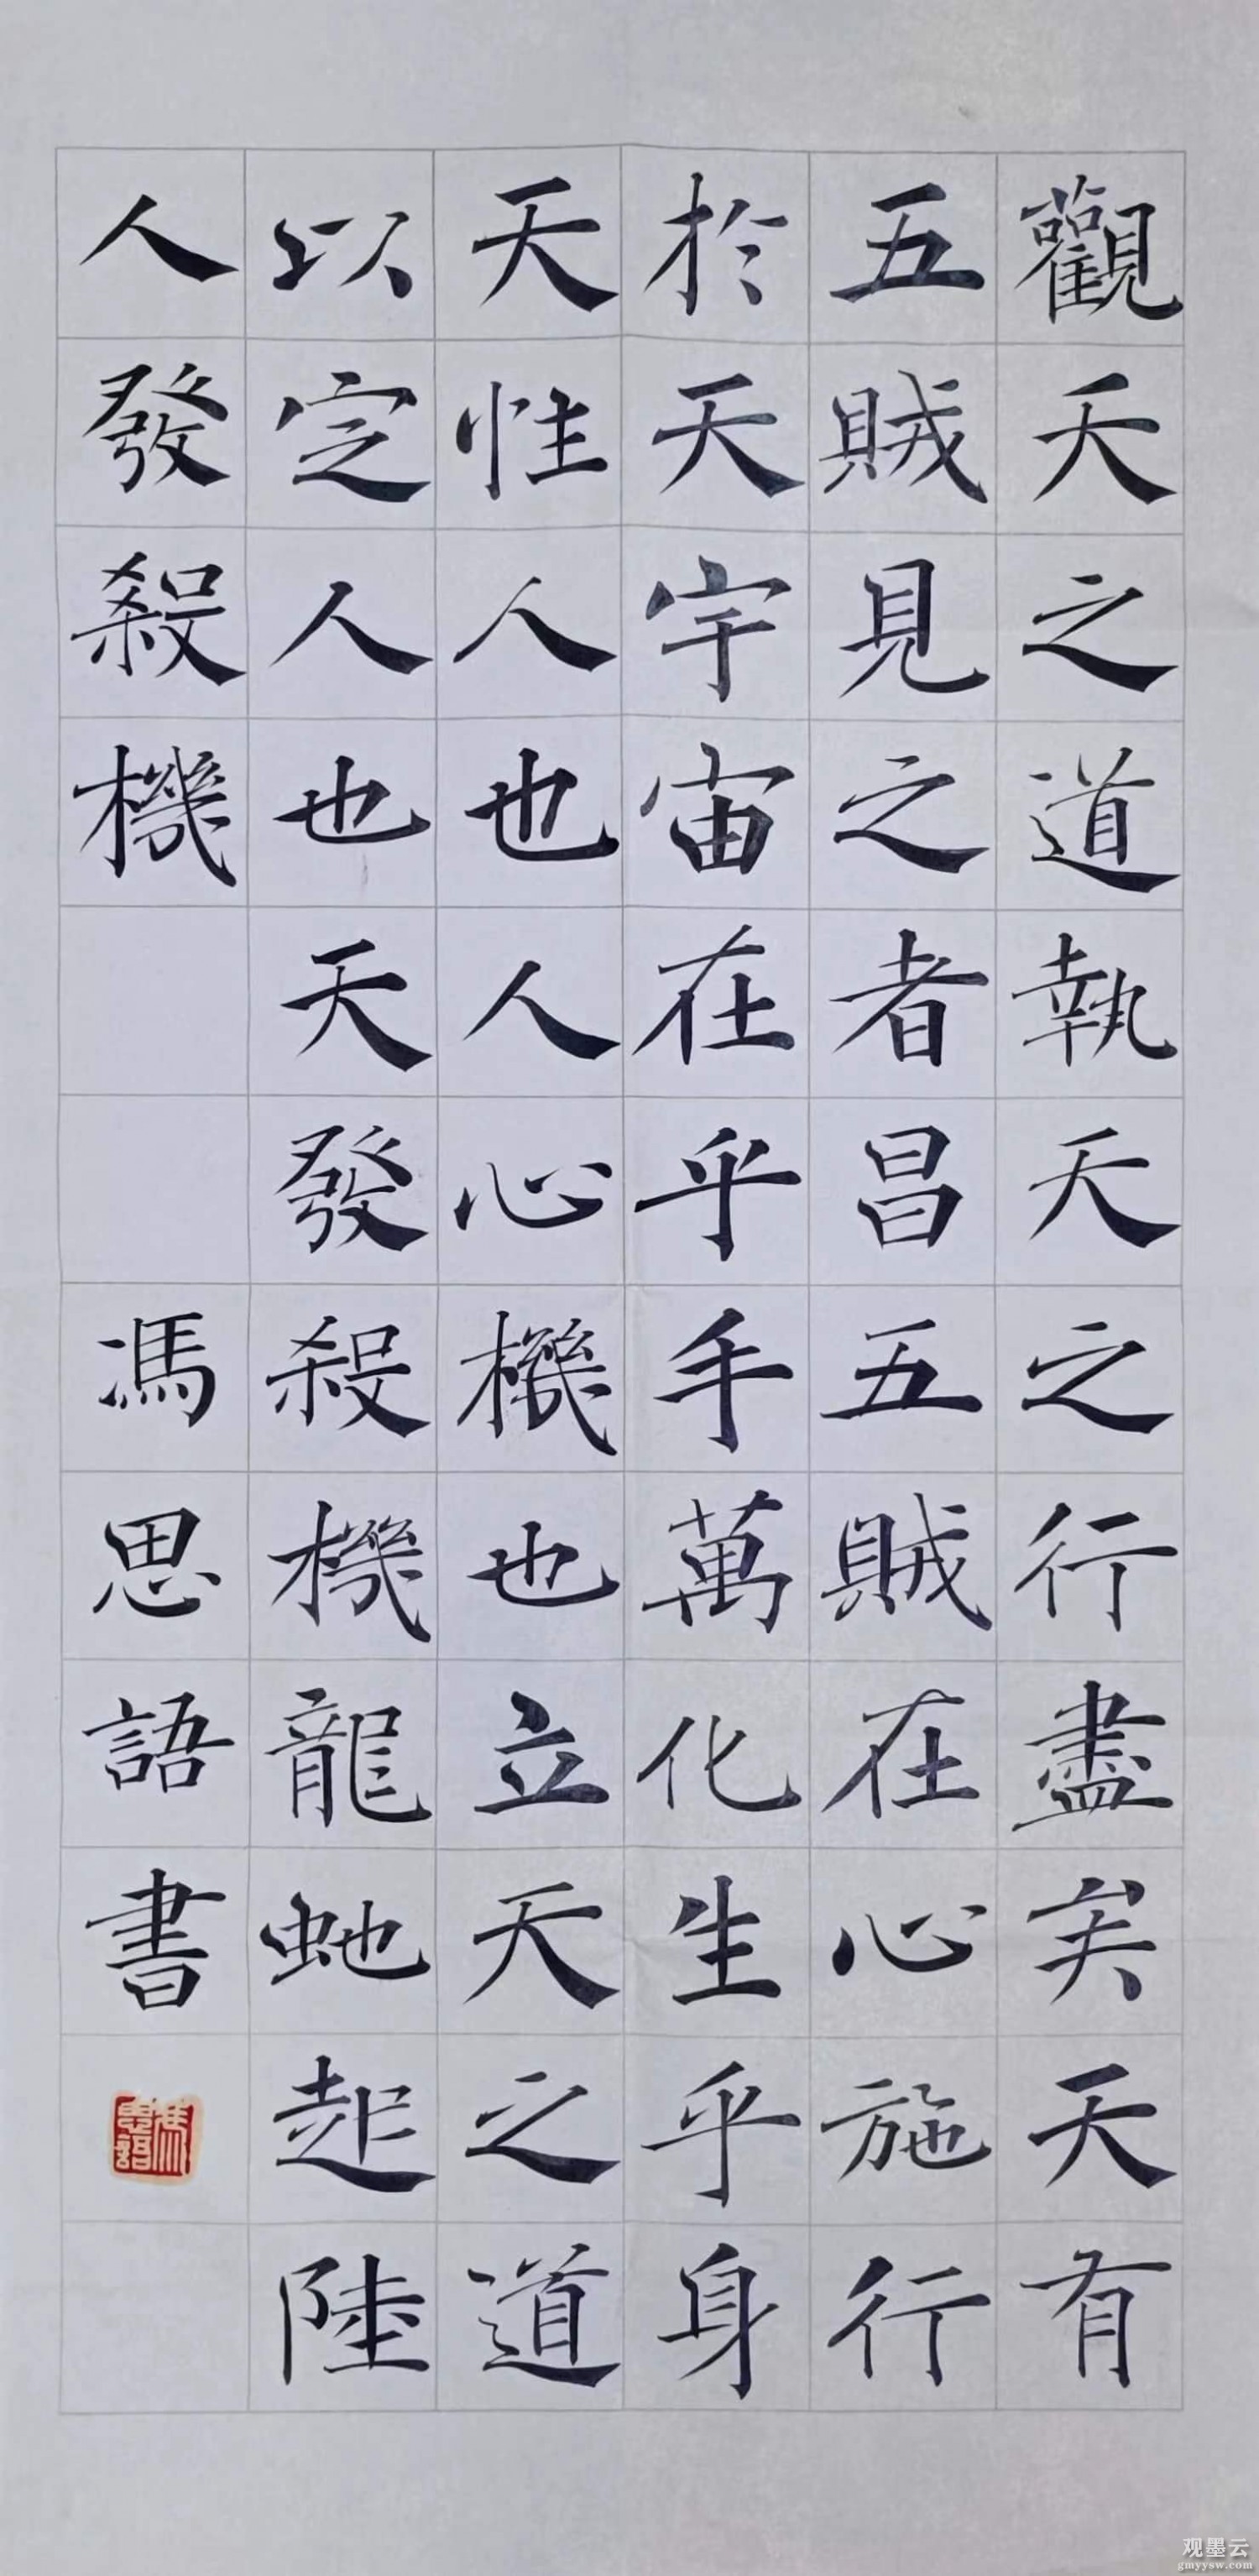 觀天之道執天之行盡矣天有
五賊見之者昌五賊在心施行
於天宇宙在乎手萬化生乎身
天性人也人心機也立天之道
以定人也天發殺機龍虵起陸
人發殺機
馮思語書
馮思語
观墨云
gmyysw.com